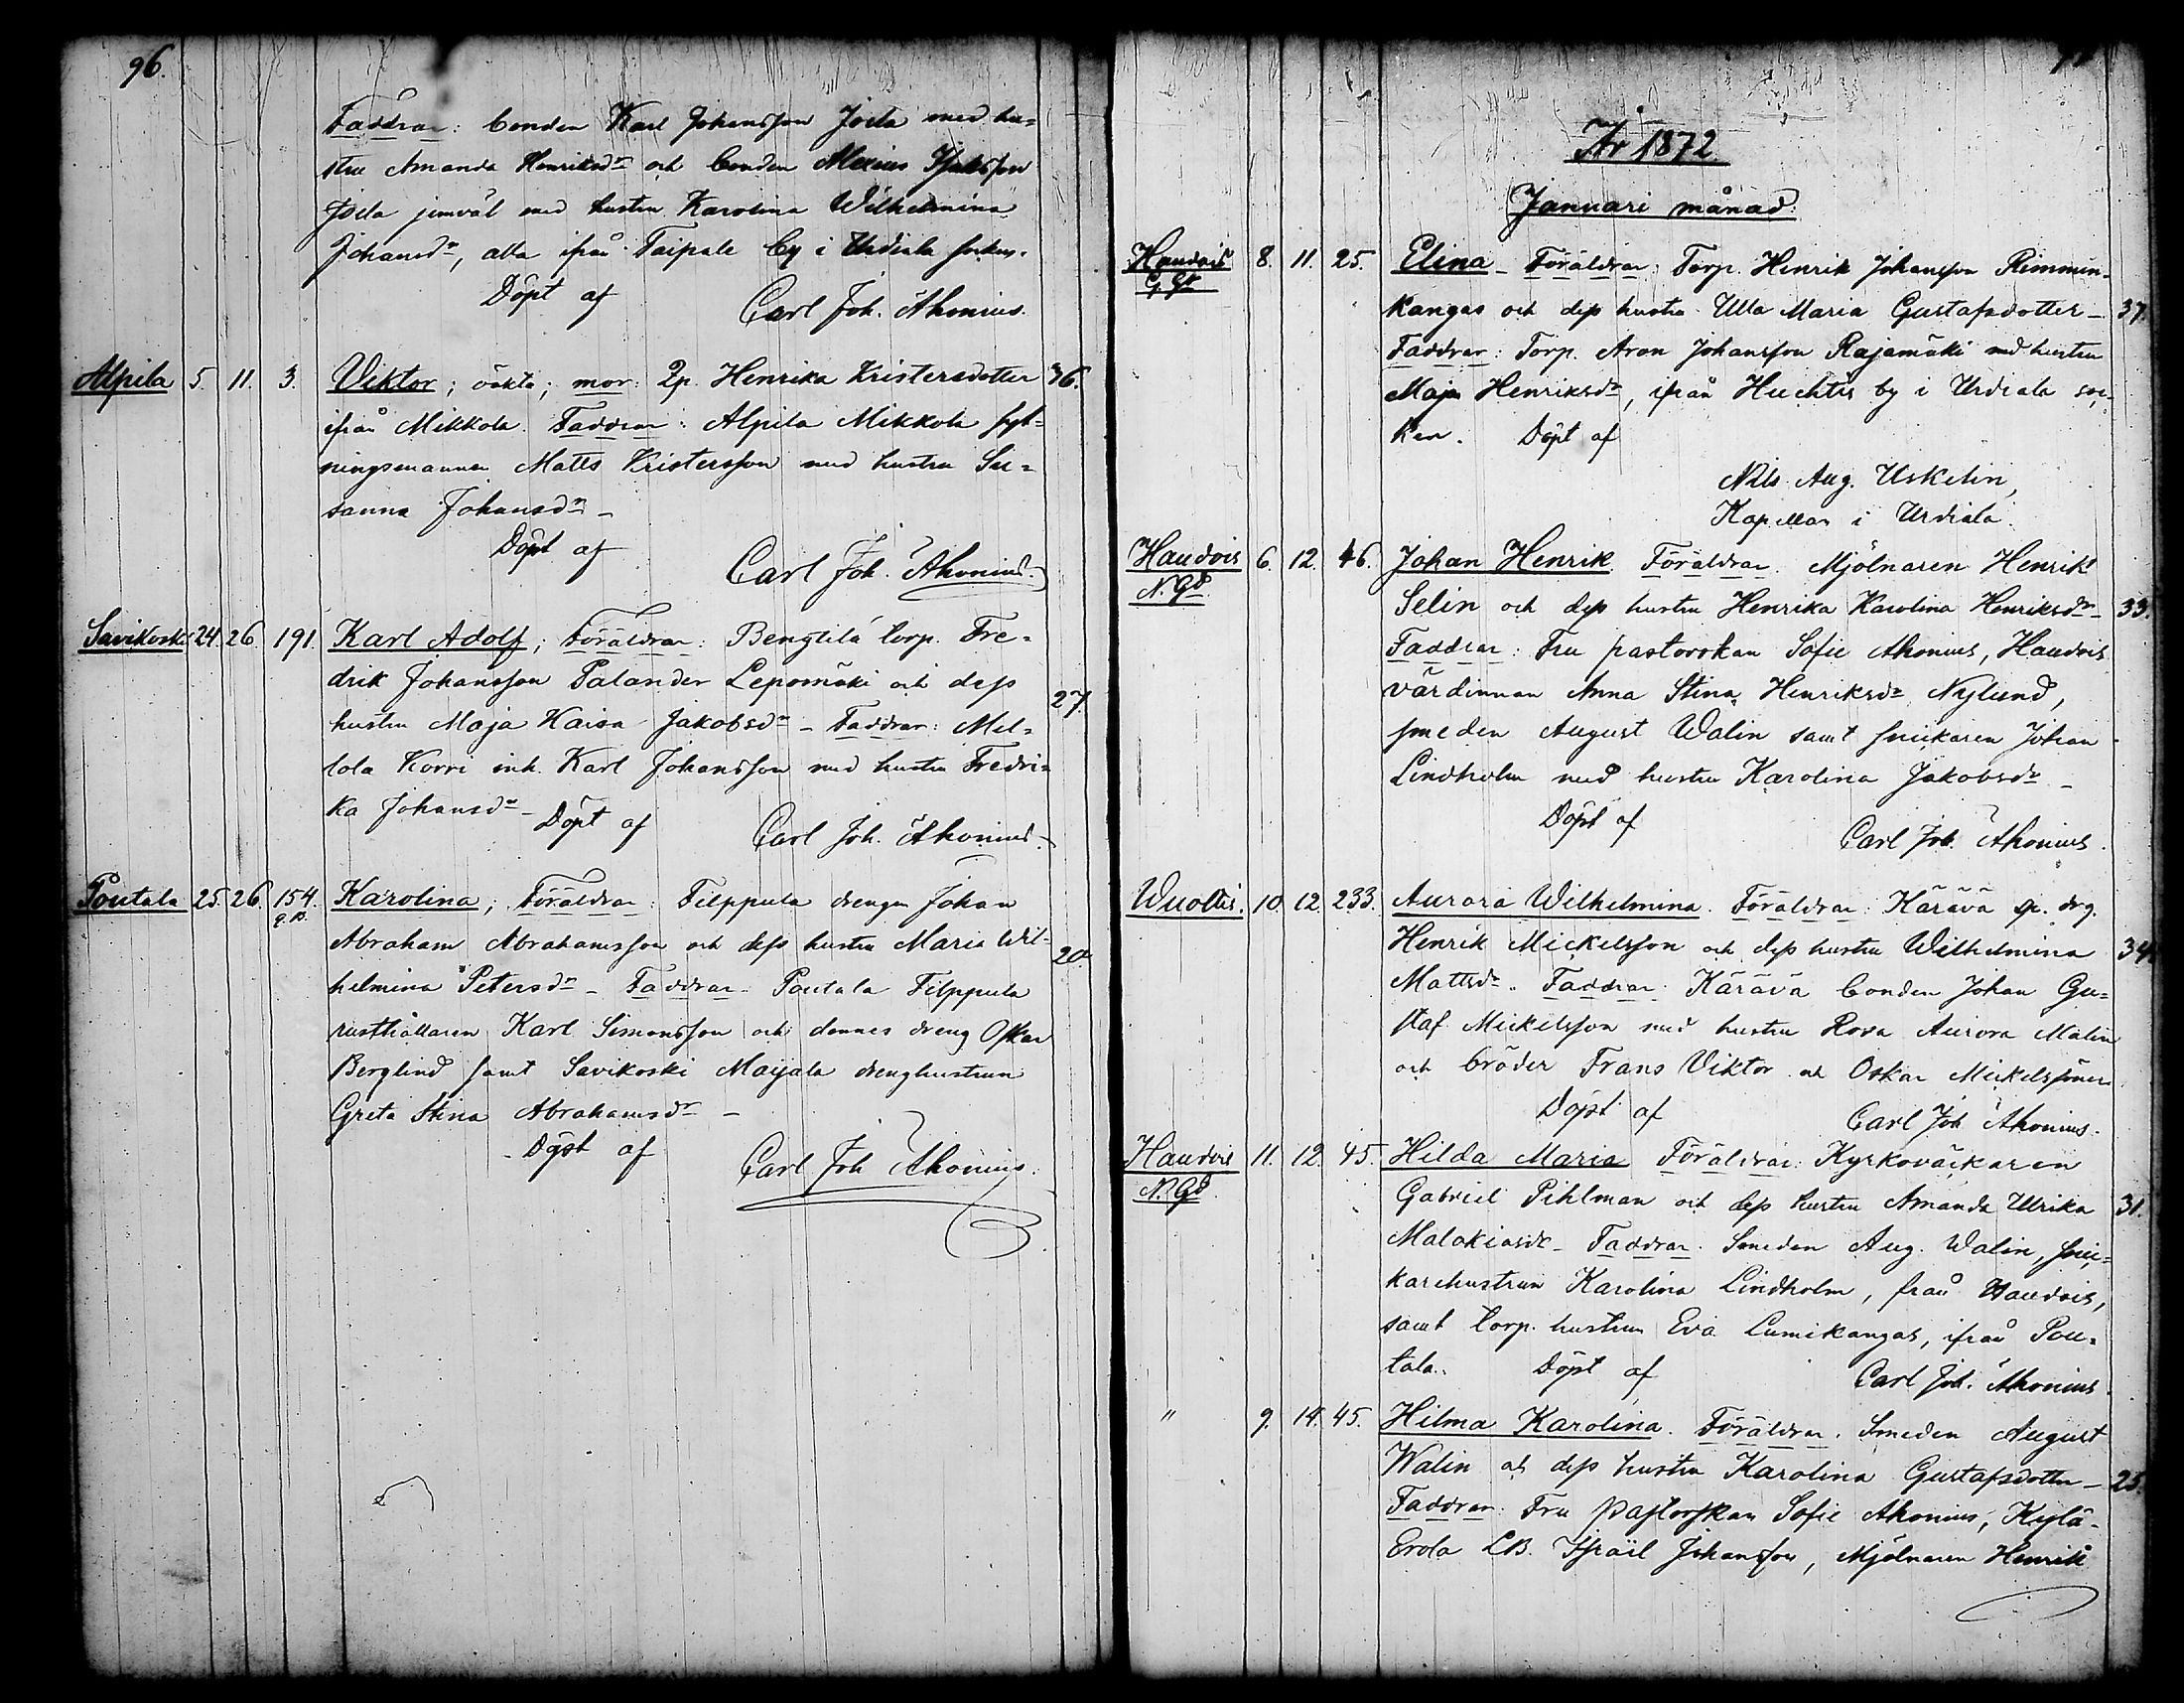 96.
Faddrar: bonden Karl Johansson Josla med hu-
stru Amanda Henriksdr och bonden Isaksson
Josla jemväl med hustru Karolina Wilhelmina
Johansdr, alla ifrån Taipale by i Urdiala socken.
Döpt af
Carl Joh. Ahonius.
Alpila 5. 11. 3. Viktor; oäkta; mor: Henrika Kristersdotter 36.
ifrån Mikkola. Faddrar: Alpila Mikkola
ningsmannen Matts Kristersson med hustru Su-
sanna Johansdr
Döpt af
Carl Joh. Ahonius.
Savikoski 24. 26. 191. Karl Adolf; Föräldrar: Bengtilä torp. Fre-
drik Johansson Palander Lepomäki och dess
hustru Maja Kaisa Jakobsdr - Faddrar: Mel- 27.
lola Korri inh. Karl Johansson med hustru Fredri-
ka Johansdr -
Döpt af
Carl Joh. Ahonius.
Poutala 25. 26. 154. Karolina; Föräldrar: Filppula drengen Johan
Abraham Abrahamsson och dess hustru Maria Wil- 20.
helmina Petersdr - Faddrar: Poutala Filppula
rusthållaren Karl Simonsson och dennes dreng Oskar
Berglind samt Savikoski Maijala drenghustrun
Greta Stina Abrahamsdr -
Döpt af
Carl Joh Ahonius.
År 1872.
Januari månad.
Haudois 8. 11. 25. Elina - Föräldrar: Torp. Henrik Johansson Rimmin-
G. Gd
kangas och dess hustru Ulla Maria Gustafsdotter - 37.
Faddrar: Torp. Aron Johansson Rajamäki med hustru
Maja Henriksdr, ifrån Huchtis by i Urdiala soc-
ken. Döpt af
Nils Aug. Uskelin,
Kapellan i Urdiala.
Haudois 6. 12. 46. Johan Henrik. Föräldrar. Mjölnaren Henrik
N. Gd.
Selin och dess hustru Henrika Karolina Henriksdr - 33.
Faddrar: Fru pastorskan Sofie Ahonius, Haudois
värdinnan Anna Stina Henriksdr Nylund,
smeden August Walin samt snickaren Johan
Lindholm med hustru Karolina Jakobsdr -
Döpt af
Carl Joh. Ahonius.
Wuoltis. 10. 12. 233. Aurora Wilhelmina. Föräldrar: Kärävä drg.
Henrik Mickelsson och dess hustru Wilhelmina 34.
Mattsdr. Faddrar: Kärävä bonden Johan Gu-
staf Mickelsson med hustru Rosa Aurora Malin
och bröder Frans Viktor och Oskar Mickelssöner
Döpt af
Carl Joh Ahonius.
Haudois 11. 12. 45. Hilda Maria Föräldrar: Kyrkoväckaren
N. Gd.
Gabriel Pihlman och dess hustru Amanda Ulrika 31.
Malakiasdr - Faddrar. Smeden Aug. Walin, snic-
karehustrun Karolina Lindholm, från Haudois,
samt torp. hustrun Eva Lumikangas, ifrån Pou-
tala. Döpt af
Carl Joh. Ahonius.
" 9. 14. 45. Hilma Karolina. Föräldrar. Smeden August
Walin och dess hustru Karolina Gustafsdotter - 25.
Faddrar: Fru pastorskan Sofie Ahonius, Kylä-
Erola LB. Israil Johansson, Mjölnaren Henrik